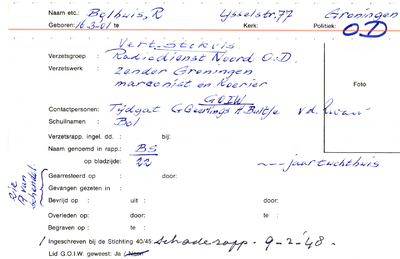 Naam etc.: Bolhuis, R IJsselstr. 77 Groningen
Geboren: 16-3-01 te Kerk: Politiek: OD
Vert. Stekvis
Verzetsgroep: Radiodienst Noord O.D.
Verzetswerk zender Groningen
marconist en koerier
G.O.I.W. Foto
Contactpersonen: Tijdgat G Geerlings H Bultje v.d.
Schuilnamen: Bol
Verzetsrapp. ingel. dd. : bij:
Naam genoemd in rapp.: BS
op bladzijde: 22
jaar tuchthuis
Gearresteerd op : door:
Gevangen gezeten in :
Bevrijd op : uit : door:
Overleden op: door: te :
Begraven op : te :
Ingeschreven bij de Stichting 40/45: Schaderapp. 9-2-'48
Lid G.O.I.W. geweest: Ja / Neen
zie
van